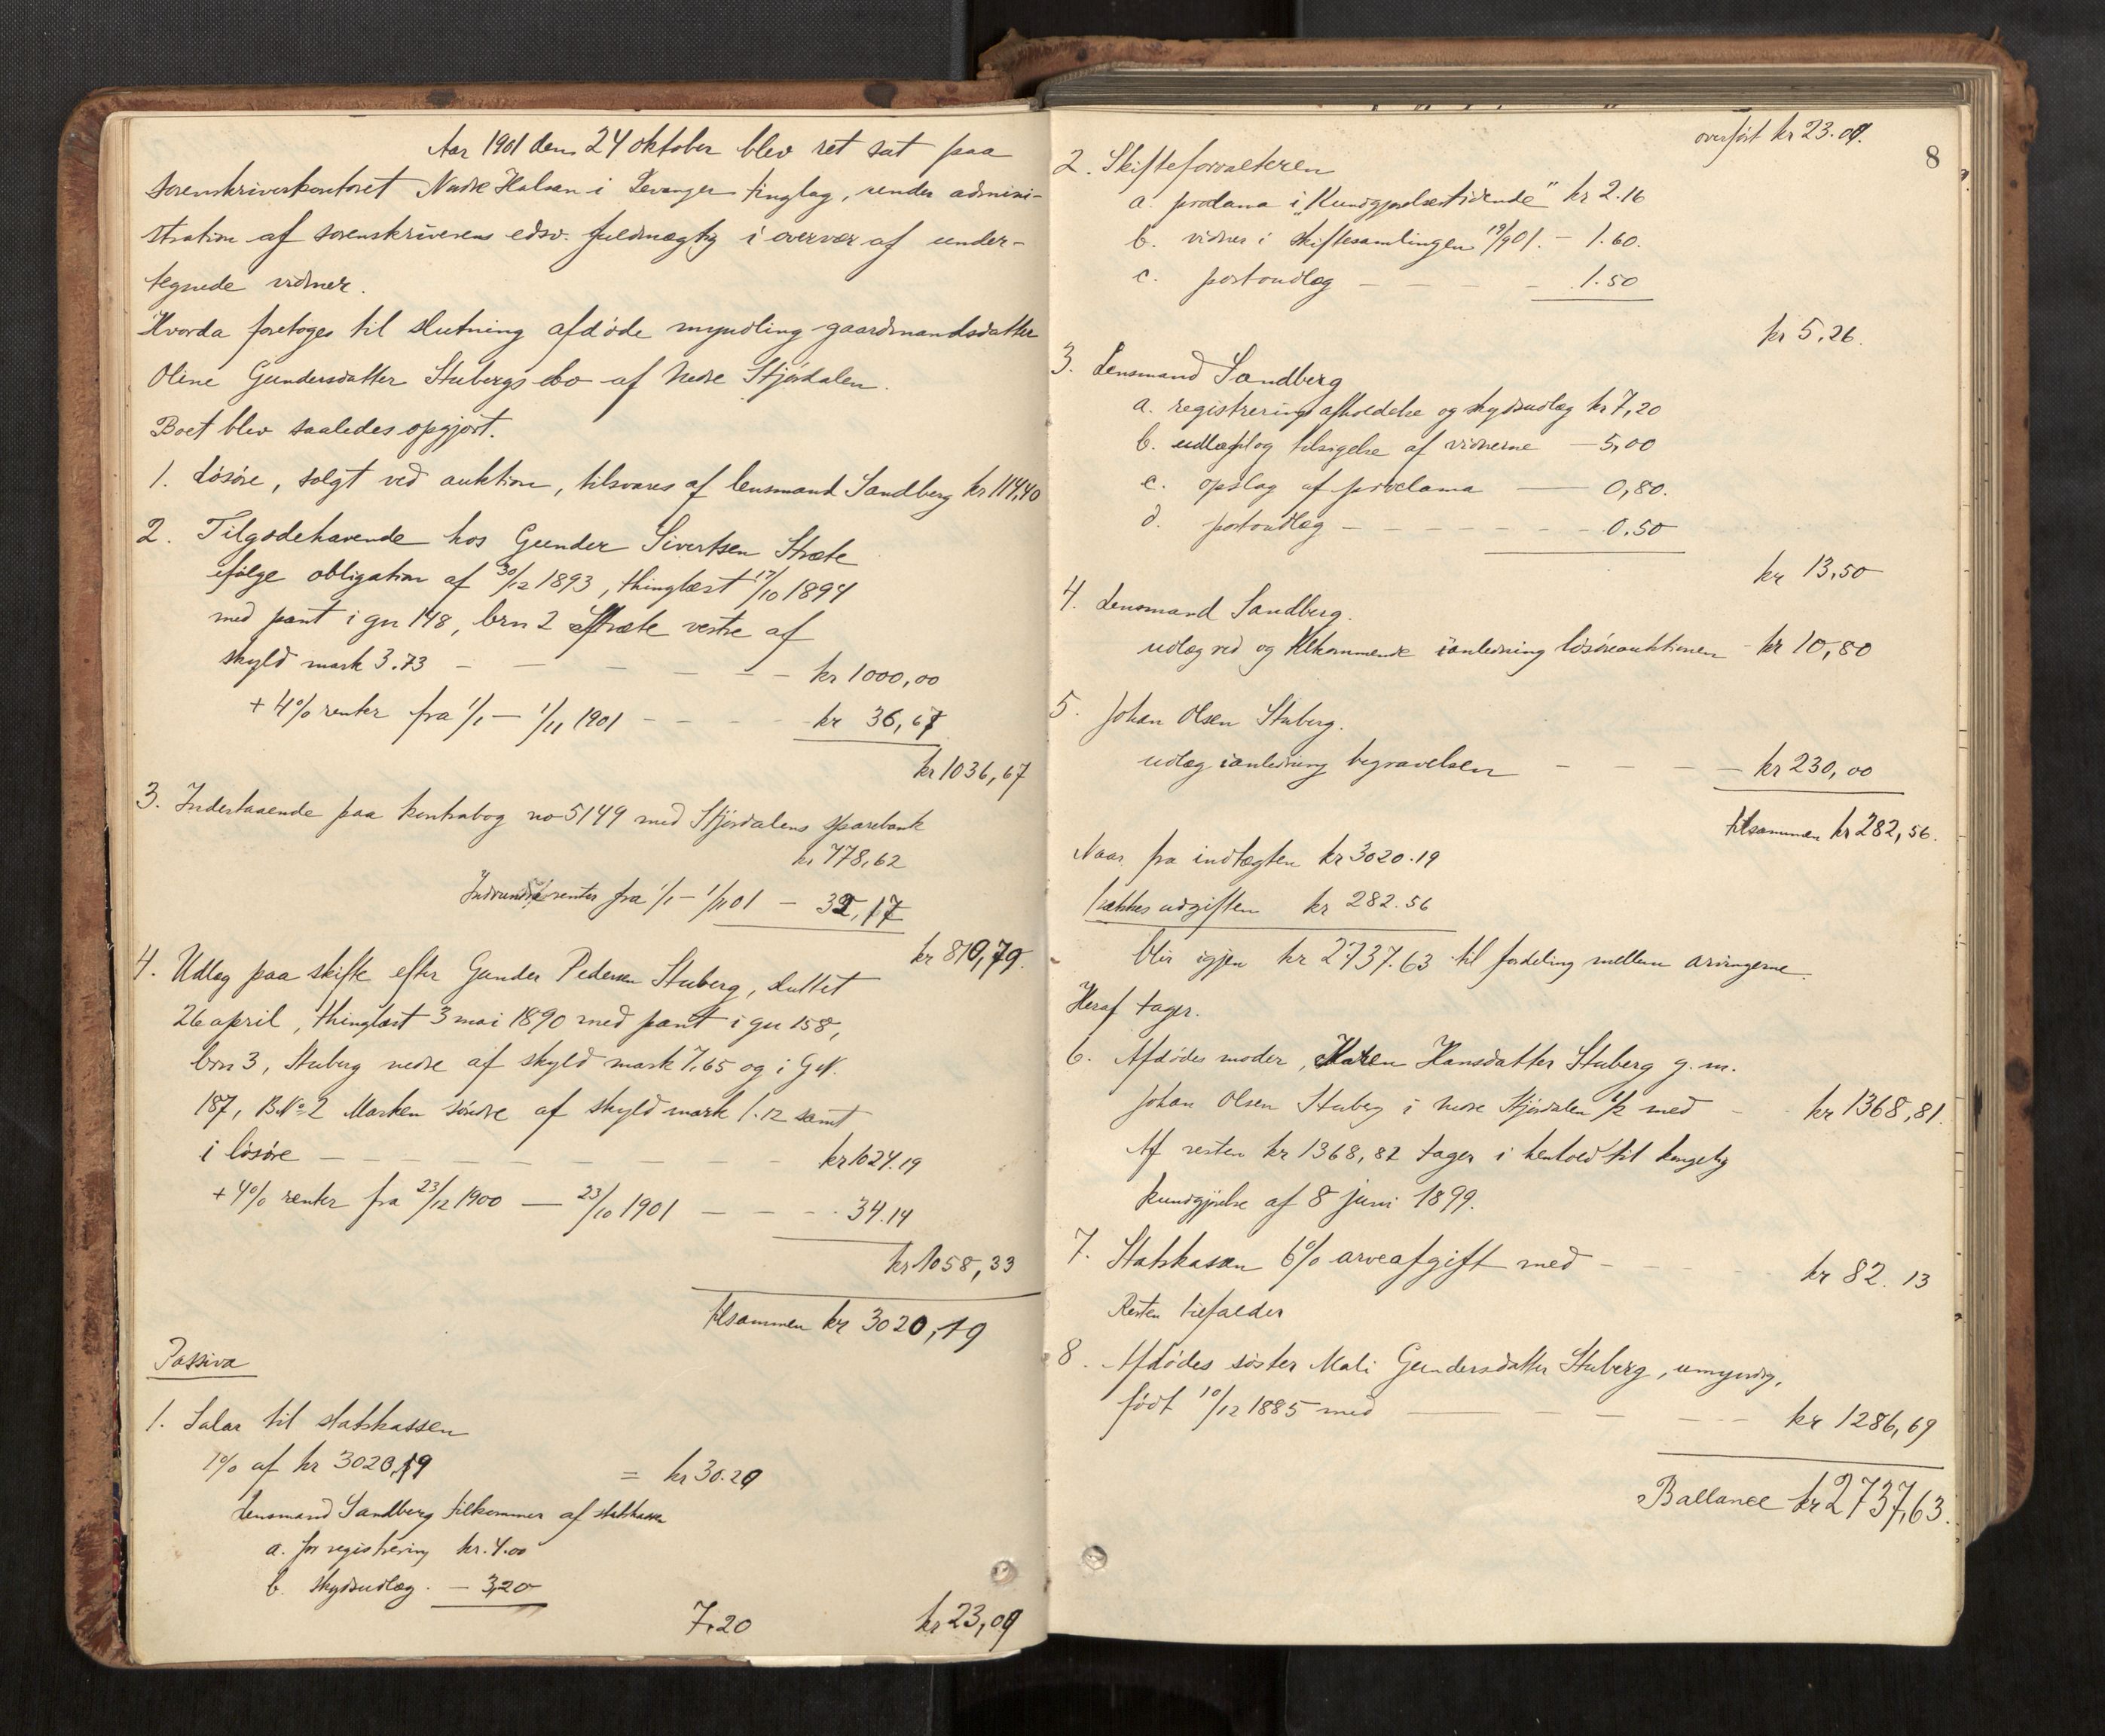 Aar 1901 den 24 oktober blev ret sat paa
sorenskriverkontoret Nedre Halsan i Levanger tinglag, under admini-
stration af sorenskriverens edsv. fuldmægtig i overvær af under-
tegnede vidner.
Hvorda foretoges til slutning afdøde myndling gaardmandsdatter
Oline Gundersdatter Stubergs bo af Nedre Stjørdalen.
Boet blev saaledes opgjort.
1. Løsøre, solgt ved auktion, tilsvares af lensmand Sandberg kr 114,40
2. Tilgodehavende hos Gunder Sivertsen Stræte
ifølge obligation af 30/12 1893, thinglæst 17/10 1894
med pant i gn 148, brn 2 Stræte vestre af
skyld mark 3.73 — — — — — kr 1000,00
+ 4% renter fra 1/1 — 1/11 1901 - - - - kr 36,67
kr 1036,67
3. Indestaaende paa kontrabog no 5149 med Stjørdalens sparebank
kr 778,62
renter fra 1/1 - 1/11 01 — 32,17
kr 810,79.
4. Udlæg paa skifte efter Gunder Pedersen Stuberg, sluttet
26 april, thinglæst 3 mai 1890 med pant i gn 158,
brn 3, Stuberg nedre af skyld mark 7,65 og i G.N.
187, B.No 2 Marken søndre af skyld mark 1.12 samt
i løsøre — — — — — — — kr 1024.19
+ 4% renter fra 23/12 1900 — 23/10 1901 — — - - 34.14
kr 1058,33
tilsammen kr 3020,19
Passiva
1. Salær til statskassen
1% af kr 3020,19 = kr 30.29
Lensmand Sandberg tilkommer af statskassen
a. for registrering kr. 4.00
b. skydsudlæg. — 3,20
7,20 kr 23,09
overført kr 23.09.
8
2. Skifteforvalteren
a. proclama i "Kundgjørelsestidende" kr 2.16
b. vidner i skiftesamlingen 19/9 01. — 1.60.
c. portoudlæg — — — — 1.50
kr 5,26.
3. Lensmand Sandberg
a. registrerings afholdelse og skydsudlæg kr 7,20
b. udlæg og tilsigelse af vidnerne — 5,00
c. opslag af proclama —— 0,80.
d. portoudlæg - - - - - - - 0.50
kr 13,50
4. Lensmand Sandberg.
udlæg ved og tilkommende ianledning løsøreauktionen - kr 10,80
5. Johan Olsen Stuberg.
udlæg ianledning begravelsen — — — — kr 230,00
tilsammen kr 282,56.
Naar fra indtægten kr 3020.19
trækkes udgiften kr 282.56
blir igjen kr 2737.63 til fordeling mellem arvingerne.
Heraf tager.
6. Afdødes moder, Karen Hansdatter Stuberg g. m.
Johan Olsen Stuberg i nedre Stjørdalen 1/2 med - - kr 1368,81.
Af resten kr 1368,82 tager i henhold til kongelig
kundgjørelse af 8 juni 1899.
7. Statskassen 6% arveafgift med - - - - - kr 82.13
Resten tilfalder
8. Afdødes søster Mali Gundersdatter Stuberg, umyndig,
født 10/12 1885 med —— — — - - - kr 1286,69
Ballance kr 2737,63.